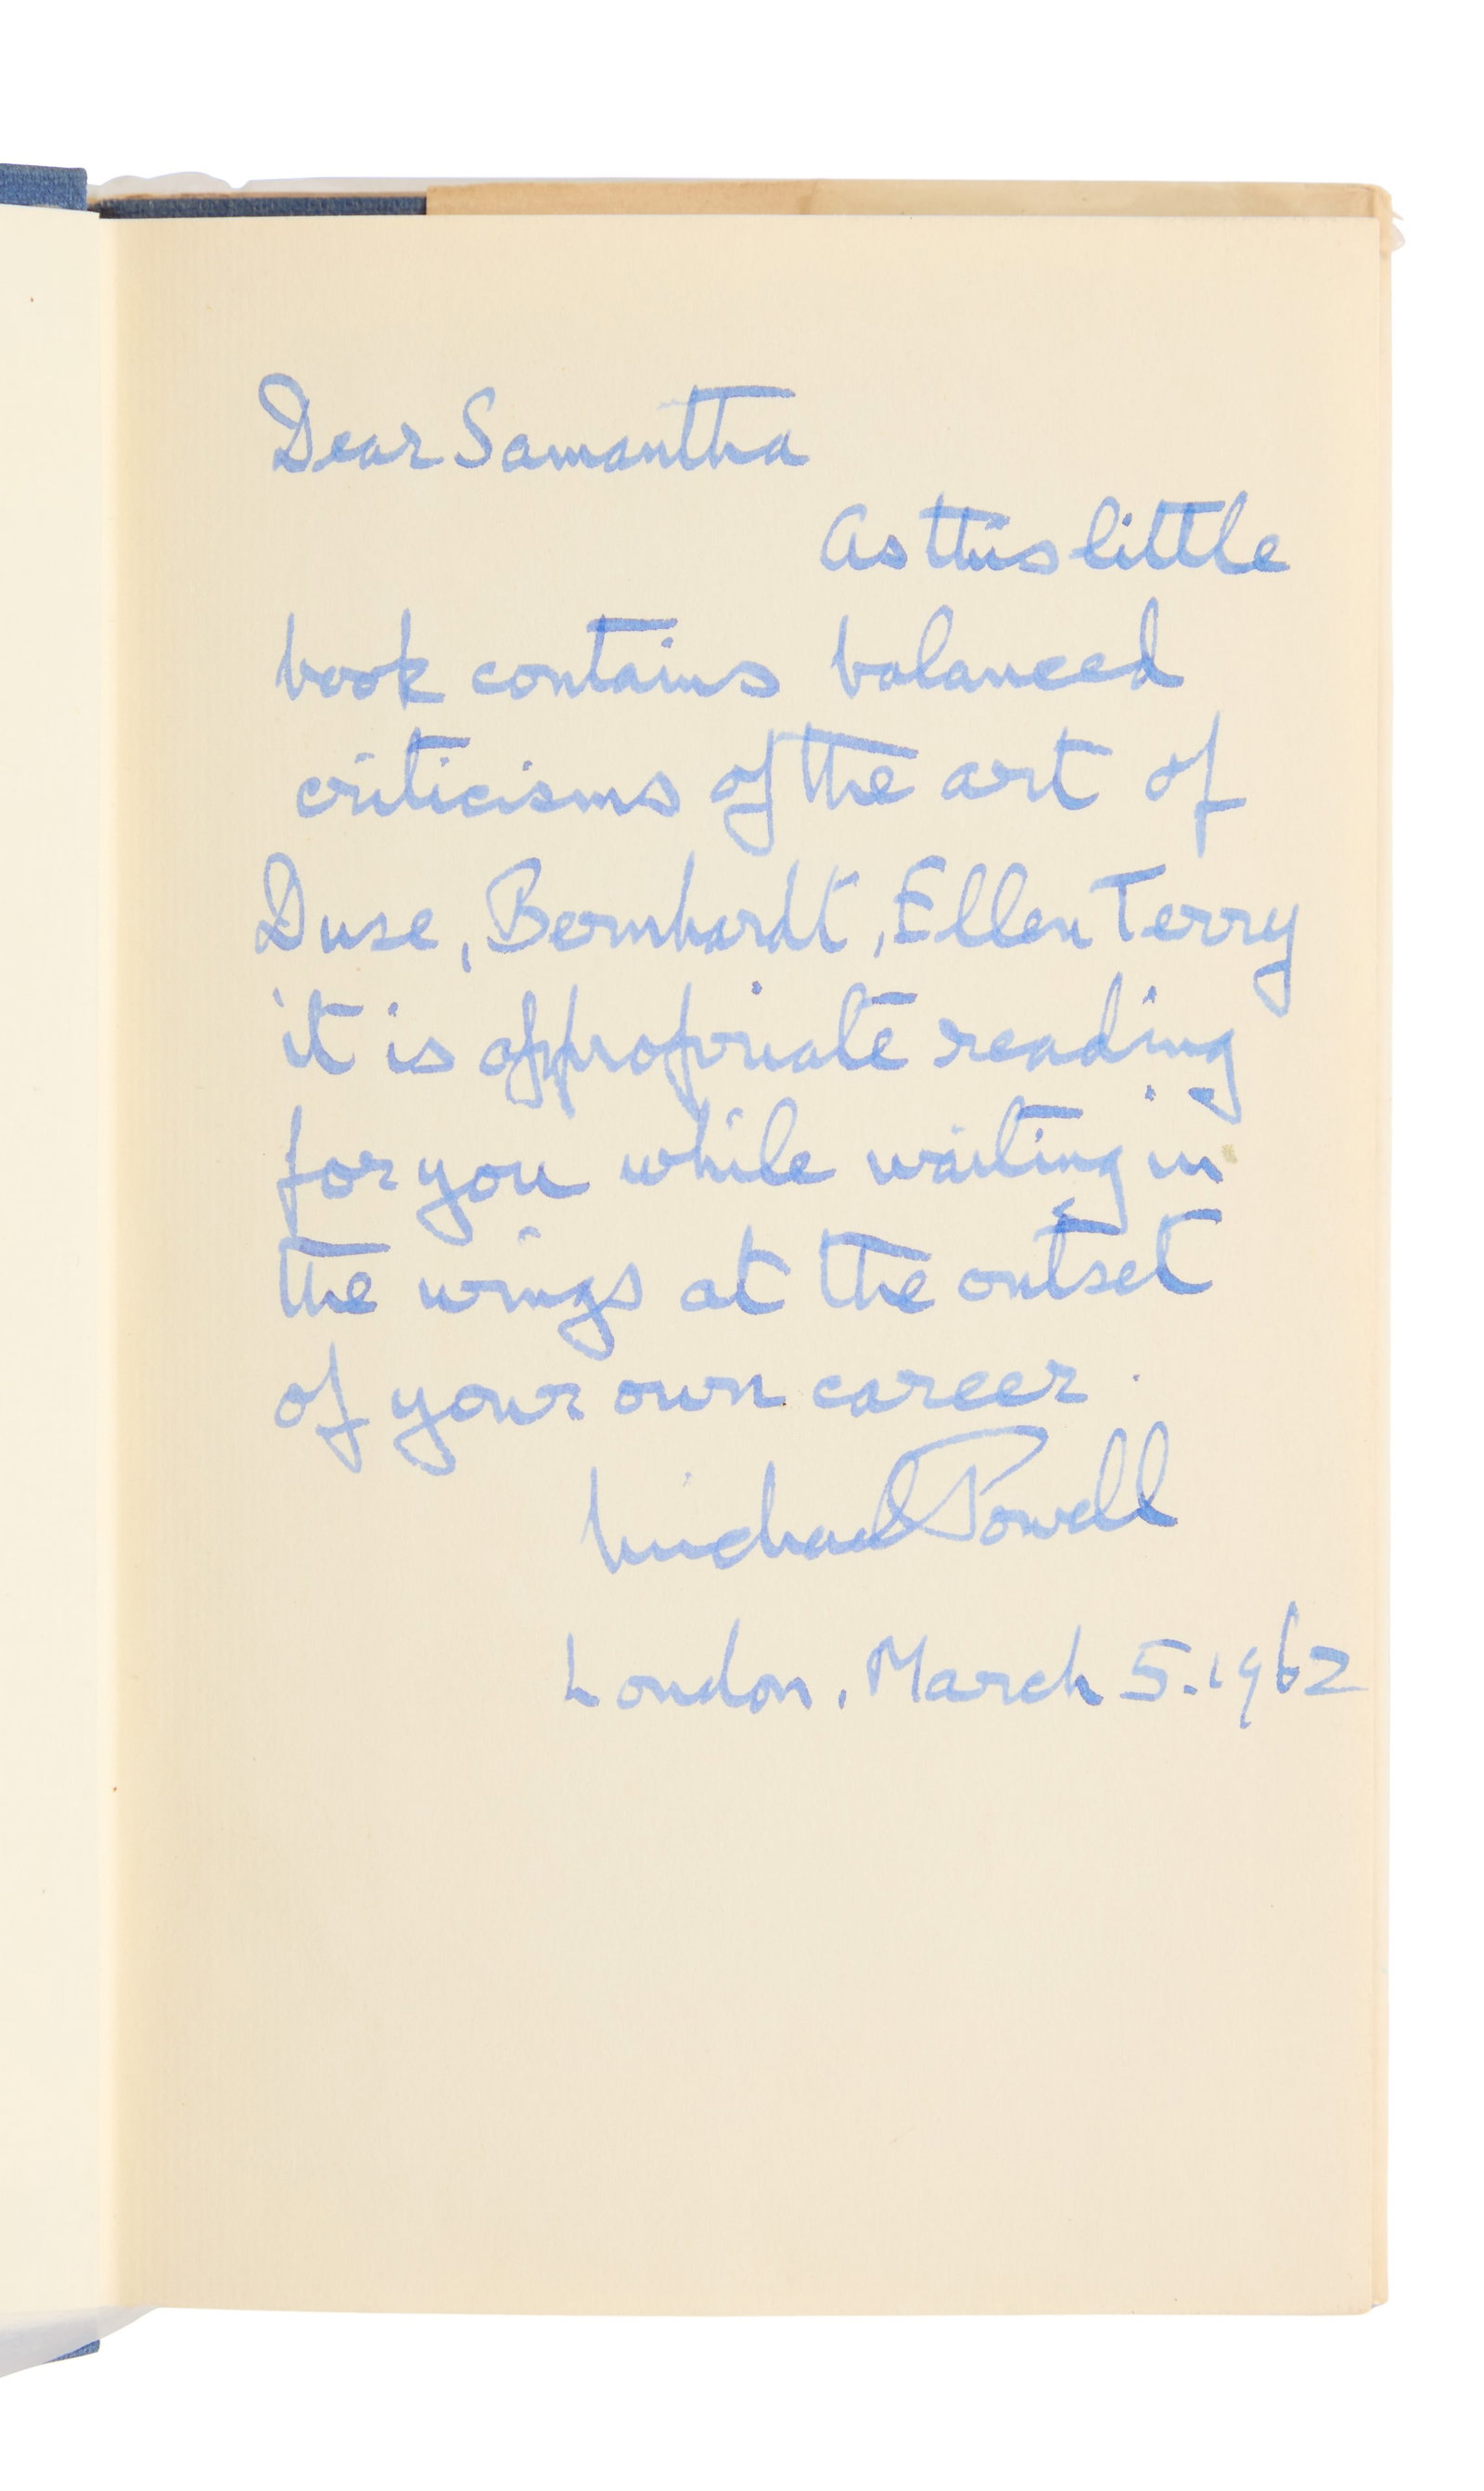 Dear Samantha
As this little
book contains balanced
criticisms of the art of
Duse, Bernhardt, Ellen Terry
it is appropriate reading
for you while waiting in
the wings at the outset
of your own career.
Michael Powell
London, March 5. 1962